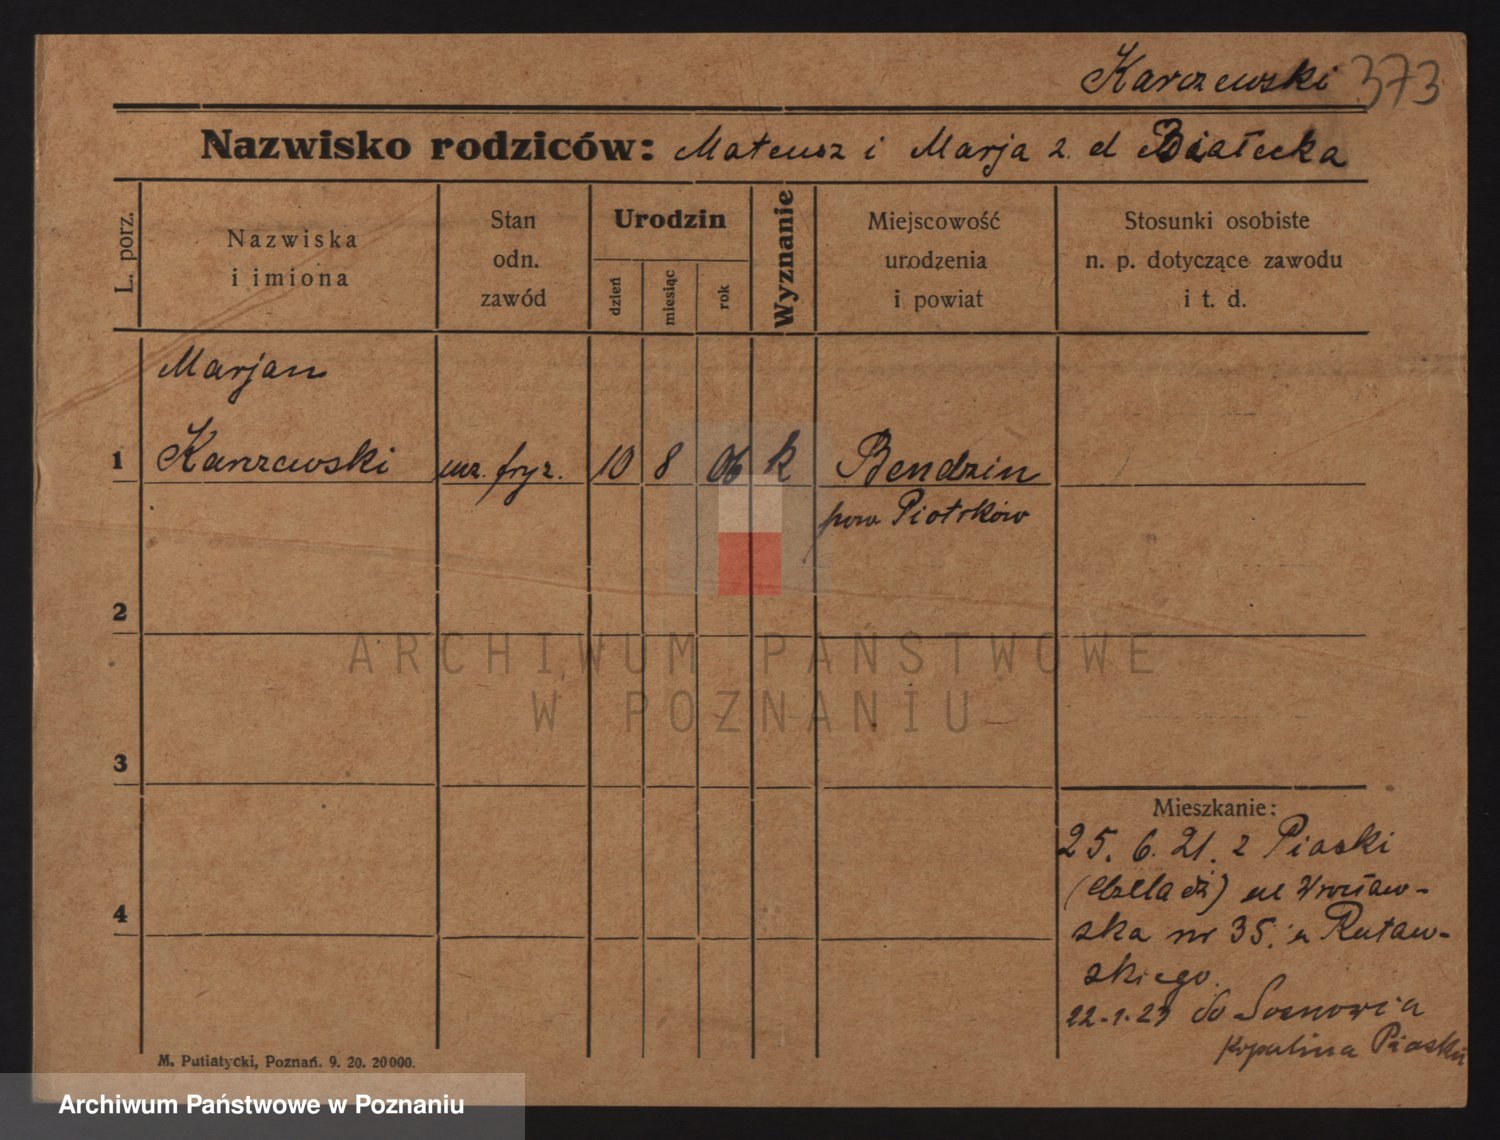 Karczewski 373
Nazwisko rodziców: Mateusz i Marja z. d Białecka
L. porz.
Nazwiska
i imiona
Stan
odn.
zawód
Urodzin
dzień
miesiąc
rok
Wyznanie
Miejscowość
urodzenia
i powiat
Stosunki osobiste
n. p. dotyczące zawodu
i t. d.
Marjan
1 Karczewski ucz. fryz. 10 8 06 k Bendzin
pow Piotrków
2
3
4
Mieszkanie:
25. 6. 21. z Piaski
(Czeladź) ul Wrocław-
ska nr 35. u Rutaw-
skiego.
22-1-23 do Sosnowca
Kopalina Piaski
M. Putiatycki, Poznań. 9. 20. 20000.
ARCHIWUM PAŃSTWOWE
W POZNANIU
Archiwum Państwowe w Poznaniu